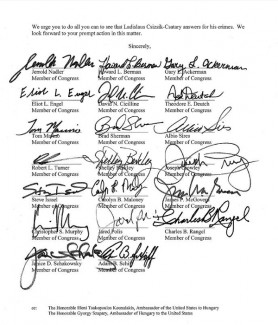 We urge you to do all you can to see that Ladislaus Csizsik-Csatary answers for his crimes. We
look forward to your prompt action in this matter.
Sincerely,
Jerrold Nadler Howard L. Berman Gary L. Ackerman
Member of Congress Member of Congress Member of Congress
Eliot L. Engel David N. Cicilline Theodore E. Deutch
Member of Congress Member of Congress Member of Congress
Tom Marino Brad Sherman Albio Sires
Member of Congress Member of Congress Member of Congress
Robert L. Turner Shelley Berkley Joseph Crowley
Member of Congress Member of Congress Member of Congress
Steve Israel Carolyn B. Maloney James P. McGovern
Member of Congress Member of Congress Member of Congress
Christopher S. Murphy Jared Polis Charles B. Rangel
Member of Congress Member of Congress Member of Congress
Janice D. Schakowsky Adam B. Schiff
Member of Congress Member of Congress
cc: The Honorable Eleni Tsakopoulos Kounalakis, Ambassador of the United States to Hungary
The Honorable György Szapáry, Ambassador of Hungary to the United States